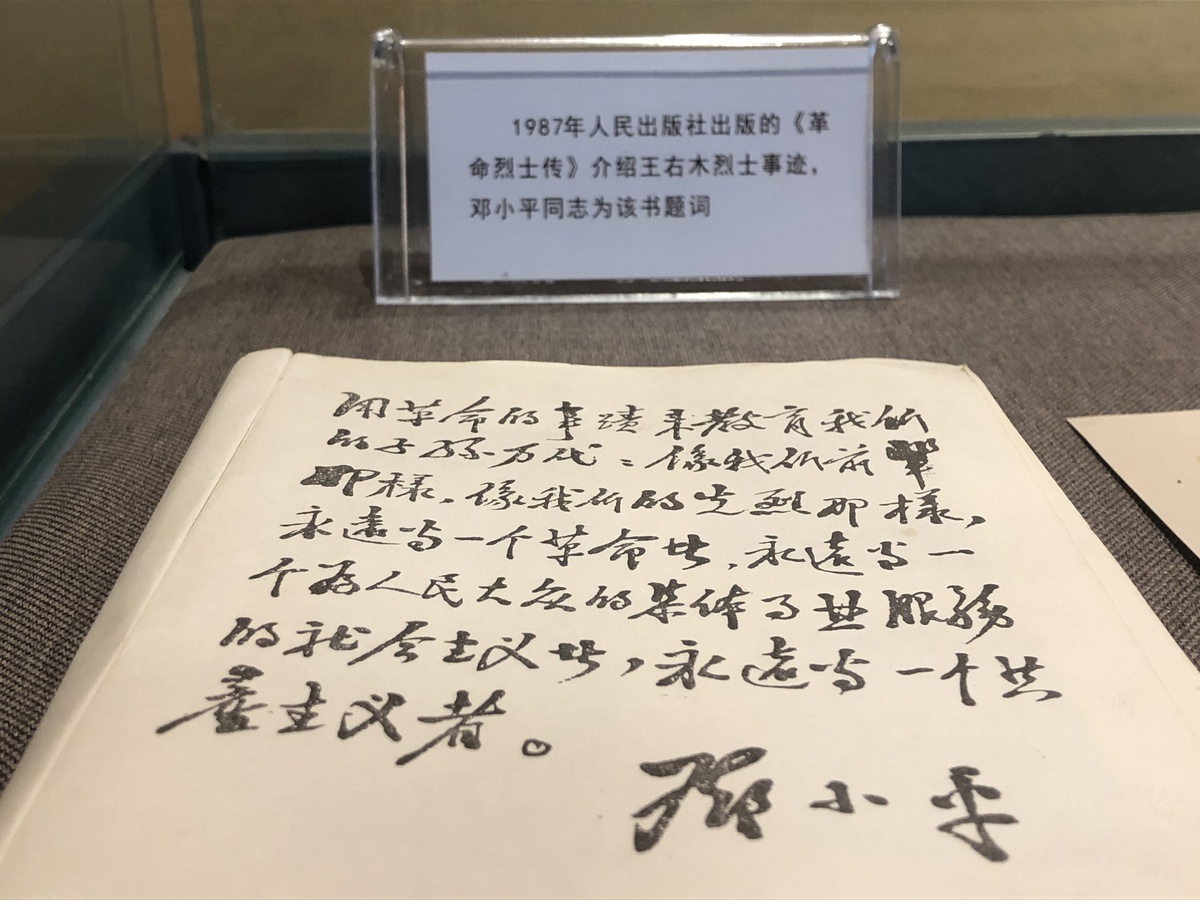 1987年人民出版社出版的《革
命烈士传》介绍王右木烈士事迹，
邓小平同志为该书题词
用革命的事蹟来教育我们
的子孙万代：像我们前辈
那樣，像我们的先烈那樣，
永遠当一个革命者，永遠当一
个为人民大众的集体事业服務
的社会主义者，永遠当一个共
產主义者。
鄧小平